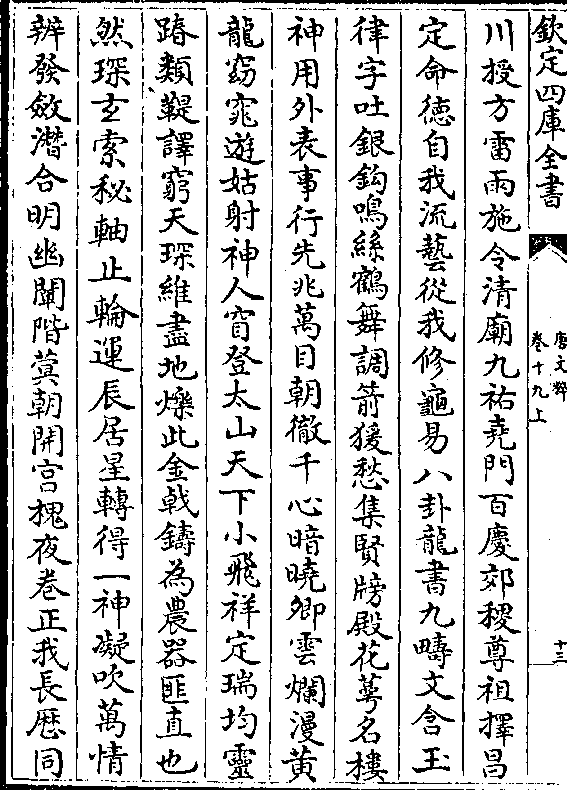 欽定四庫全書
唐文粹
卷十九上
十三
川授方雷雨施令清廟九祐堯門百慶郊稷尊祖擇昌
定命德自我流藝從我修龜易八卦龍書九疇文含玉
律字吐銀鈎鳴絲鶴舞調箭猨愁集賢牓殿花萼名樓
神用外表事行先兆萬目朝徹千心暗曉卿雲爛漫黄
龍窈窕遊姑射神人窅登太山天下小飛祥定瑞均靈
踳類鞮譯窮天琛維盡地爍此金戟鑄為農器匪直也
然琛玄索秘軸止輪運辰居星轉得一神凝吹萬情
辨發斂潛合明幽闡階蓂朝開宫槐夜卷正我長厯同